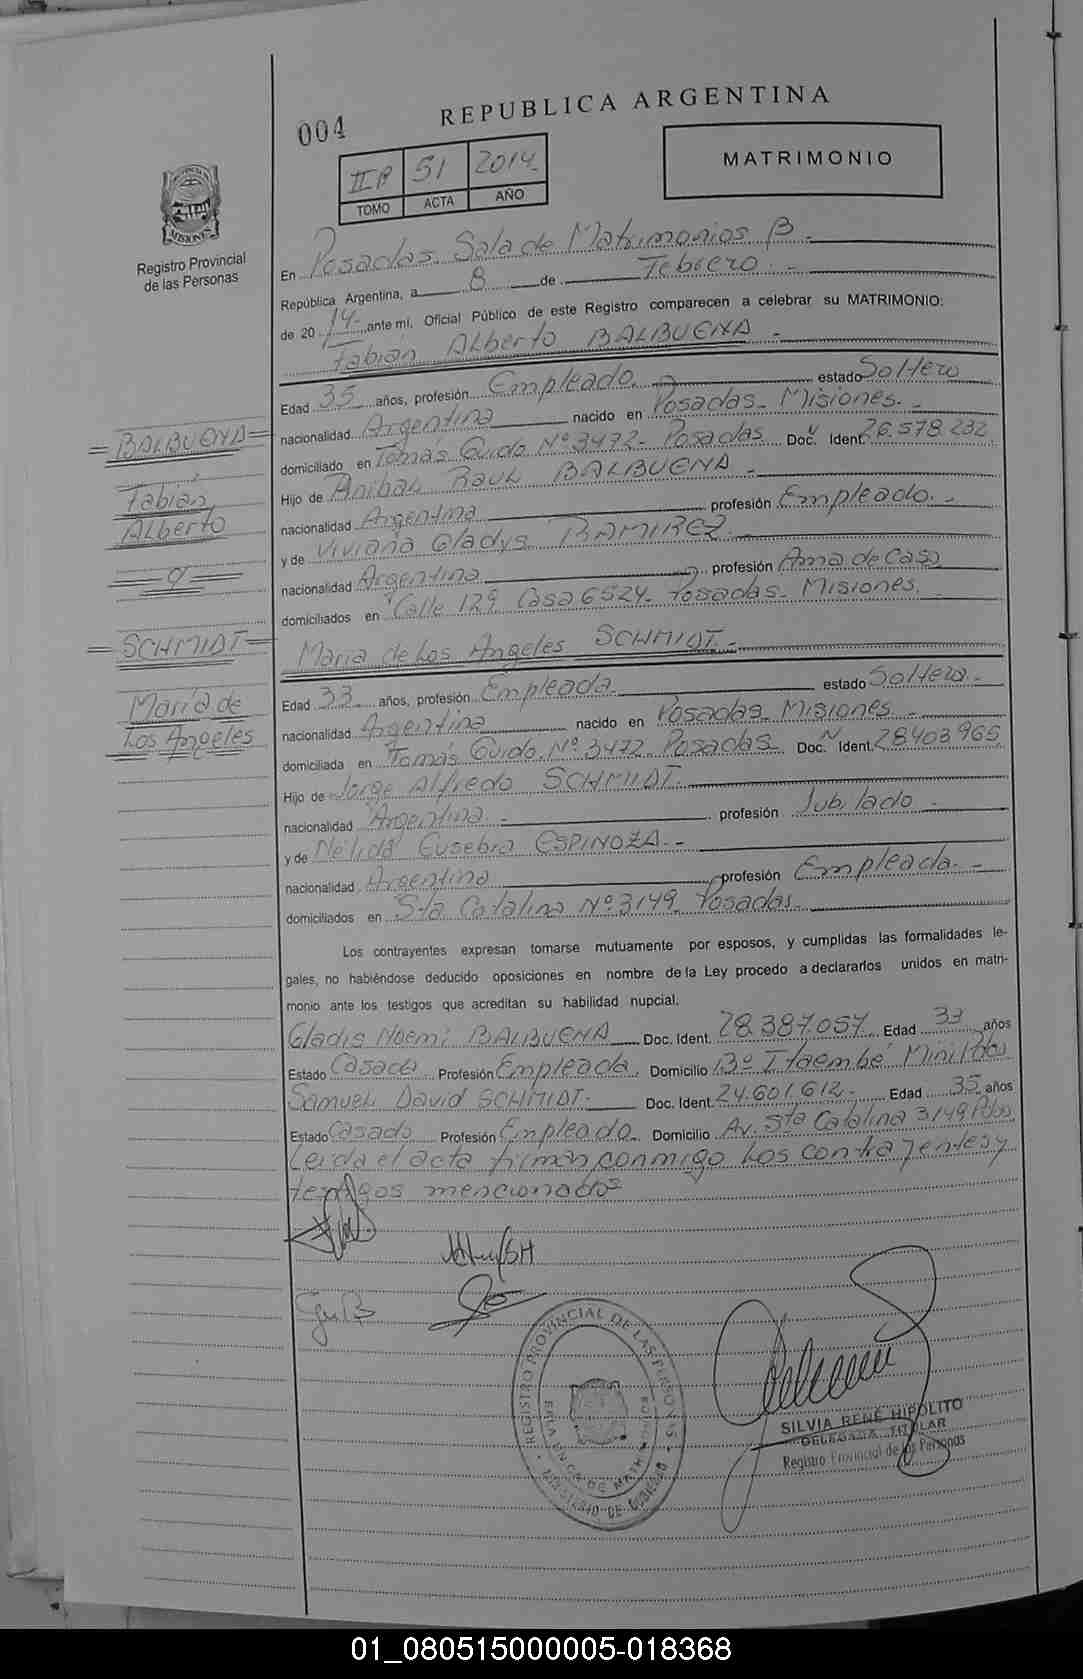 REPUBLICA ARGENTINA
004
MATRIMONIO
IIB 51 2014
TOMO ACTA AÑO
PROVINCIA DE
MISIONES
Registro Provincial
de las Personas
En Posadas. Sala de Matrimonios B
República Argentina, a 8 de Febrero
de 2014, ante mí, Oficial Público de este Registro comparecen a celebrar su MATRIMONIO:
Fabián Alberto BALBUENA
Edad 35 años, profesión Empleado estado Soltero
nacionalidad Argentina nacido en Posadas - Misiones.
domiciliado en Tomás Guido Nº 3472 - Posadas Doc. N Ident. 26.578.232
Hijo de Anibal Raul BALBUENA
nacionalidad Argentina profesión Empleado
y de Viviana Gladys RAMIREZ
nacionalidad Argentina profesión Ama de Casa
domiciliados en Calle 129 Casa 6524 - Posadas - Misiones.
María de Los Angeles SCHMIDT
Edad 33 años, profesión Empleada estado Soltera
nacionalidad Argentina nacido en Posadas - Misiones
domiciliada en Tomás Guido Nº 3472 Posadas Doc. N Ident. 28403965
Hijo de Jorge Alfredo SCHMIDT
nacionalidad Argentina profesión Jubilado
y de Nélida Eusebia ESPINOZA
nacionalidad Argentina profesión Empleada
domiciliados en Sta Catalina Nº 3149 Posadas
= BALBUENA =
Fabián
Alberto
SCHMIDT =
María de
Los Angeles
Los contrayentes expresan tomarse mutuamente por esposos, y cumplidas las formalidades le-
gales, no habiéndose deducido oposiciones en nombre de la Ley procedo a declararlos unidos en matri-
monio ante los testigos que acreditan su habilidad nupcial.
Gladis Noemi BALBUENA Doc. Ident. 28.387.057 Edad 33 años
Estado Casada Profesión Empleada Domicilio Bº Itaembé Mini
Samuel David SCHMIDT Doc. Ident. 24.601.612 Edad 35 años
Estado Casado Profesión Empleado Domicilio Av. Sta Catalina 3149 Pdas
Leída el acta firman conmigo los contrayentes y
testigos mencionados
REGISTRO PROVINCIAL DE LAS PERSONAS
MINISTERIO DE GOBIERNO
SILVIA RENÉ HIPOLITO
DELEGADA TITULAR
Registro Provincial de las Personas
01_080515000005-018368